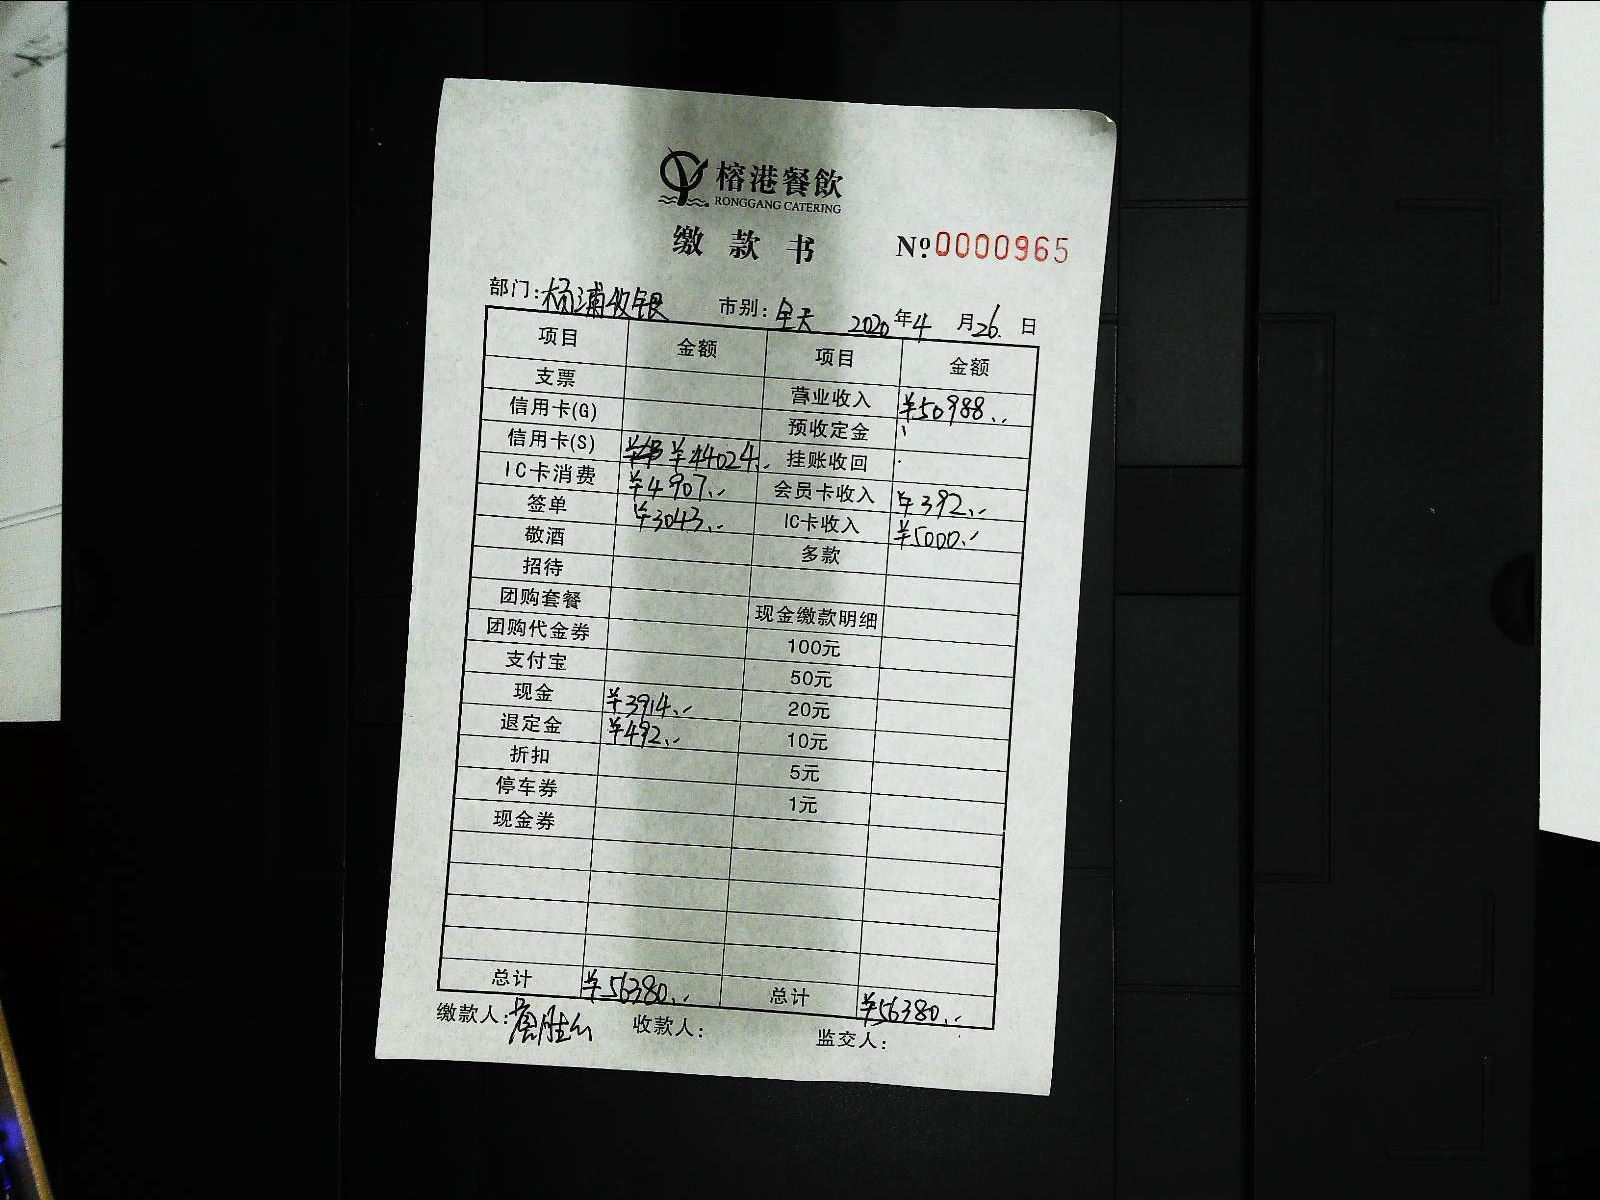 榕港餐飲
RONGGANG CATERING
缴款书 №0000965
部门：杨浦收银 市别：全天 2020年4月26.日
项目 金额 项目 金额
支票 营业收入 ¥50988.-
信用卡(G) 预收定金
信用卡(S) ¥44024.- 挂账收回
IC卡消费 ¥4907.- 会员卡收入 ¥392.-
签单 ¥3043.- IC卡收入 ¥5000.-
敬酒 多款
招待
团购套餐 现金缴款明细
团购代金券 100元
支付宝 50元
现金 ¥3914.- 20元
退定金 ¥492.- 10元
折扣 5元
停车券 1元
现金券
总计 ¥56380.- 总计 ¥56380.-
缴款人： 收款人： 监交人：